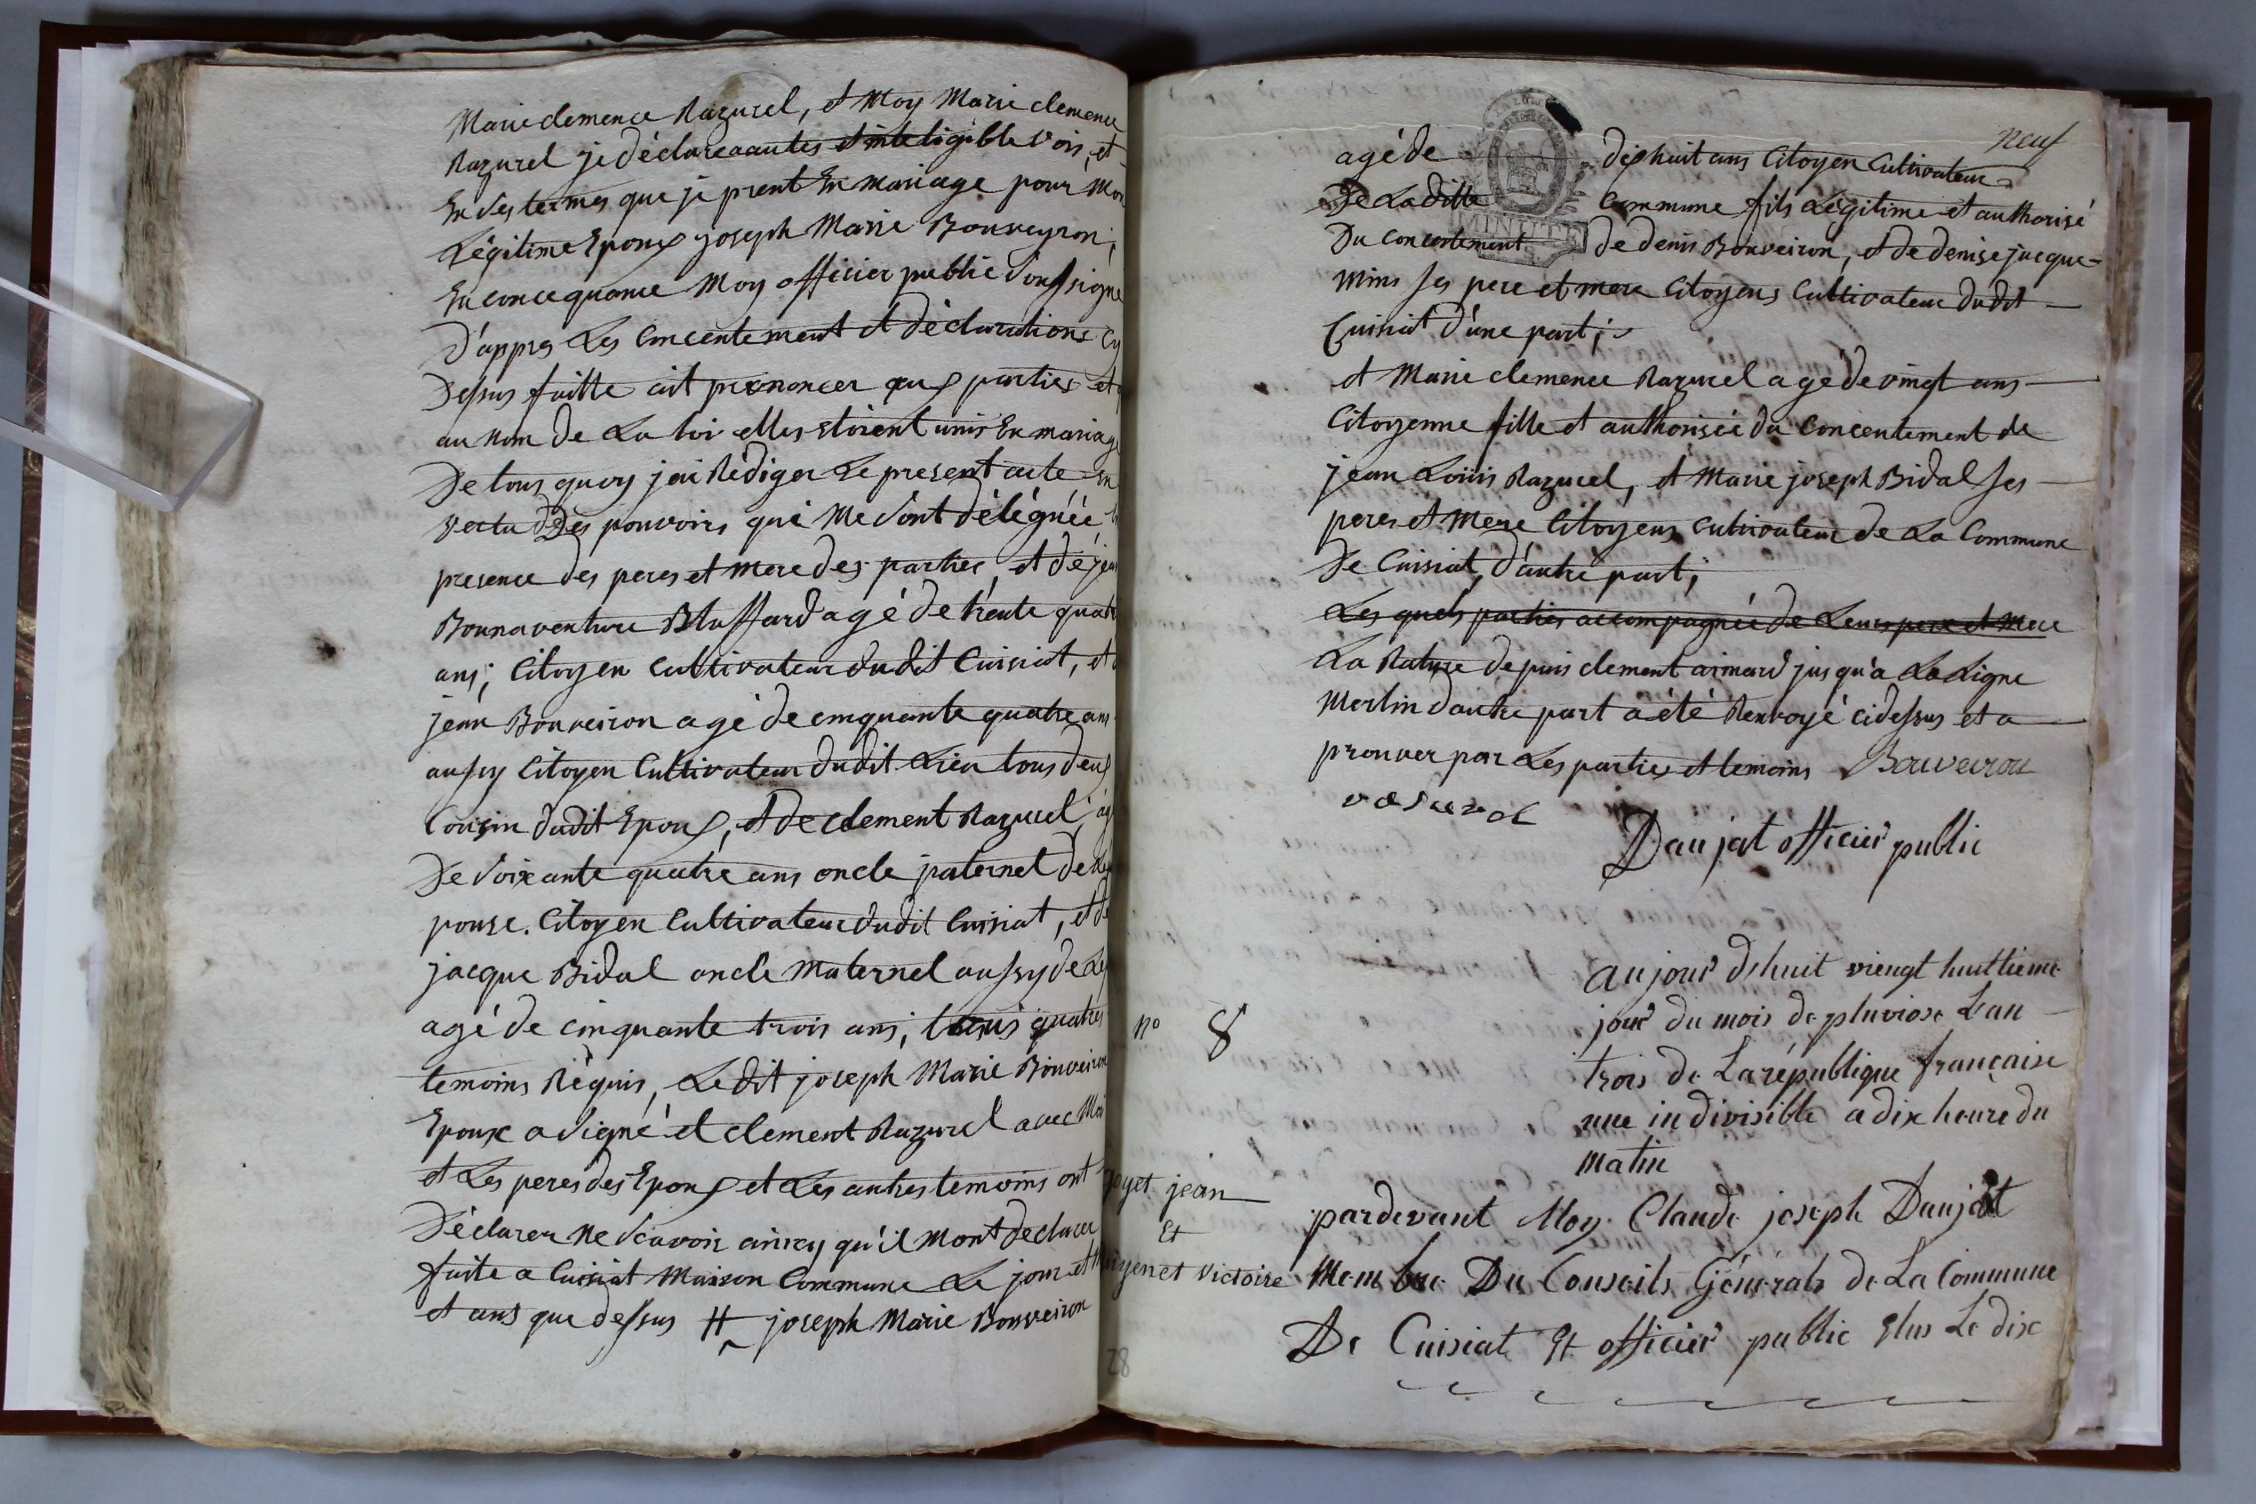 Marie clemence Razurel, et Moy Marie clemence
Razurel je déclare a autes et inteligible vois, et
En ses termes que je prent En mariage pour Mon
Légitime Epoux joseph Marie Bonveyron;
En concequance Moy officier public sousigné
D'appres Les concentement et déclarations cy
Dessus faitte ait prononcer aux parties et
au nom de La Loi elles etoient unis En mariage
De tous quoy jai Rédiger Le present acte En
vertu Des pouvoirs qui Me sont délégnéé
presence des peres et mere des parties, et dé jean
Bonnaventure Bluffard agé de trente quatre
ans; Citoyen cultivateur dudit Cuisiat, et
jean Bonveiron agé de cinquante quatre ans
aussy Citoyen Cultivateur dudit Lieu tous deux
Cousin dudit Epoux, et de clement Razurel, agé
De soixante quatre ans oncle paternel de
pouse. Citoyen Cultivateur dudit Cuisiat, et de
jacque Bidal oncle maternel aussy de
agé de cinquante trois ans; tous quatres
temoins Réquis, Le dit joseph Marie Bonveiron
Epoux a signé et clement Razurel avec Moi
et Les peres des Epoux et Les autres temoins ont
Déclarer Ne scavoir ainsy qu'il Mont declarer
faite a Cuisiat Maison Commune Le jour et
et ans que dessus # joseph Marie Bonveiron
28
neuf
MINUTE
agé de dixhuit ans Citoyen Cultivateur
De Laditte Commune fils Légitime et authorisé
Du concentement de denis Bonveiron, et de denise jacque-
mins ses pere et mere Citoyens Cultivateur dudit
Cuisiat d'une part;
et Marie clemence Razurel agé de vingt ans
Citoyenne fille et authorisée du Concentement de
jean Louis Razurel, et Marie joseph Bidal ses
peres et Mere Citoyens Cultivateur de La Commune
De Cuisiat, d'autre part;
Les quels parties accompagnéé de Leurs pere et Mere
La Rature depuis clement aimard jusqu'a La Ligne
Merlin d'autre part a été Renvoyé cidessus et a
prouver par Les parties et temoins Bonveiron
rasurel
Daujat officier public
No 8
aujour dhuit viengt huittieme
jour du mois de pluviose Lan
trois de La république française
une indivisible a dix heure du
matin
goyet jean
Et
victoire
pardevant Moy Claude joseph Daujat
Membre Du Conseils Générals de La Commune
De Cuisiat Et officier public Elus Le dix